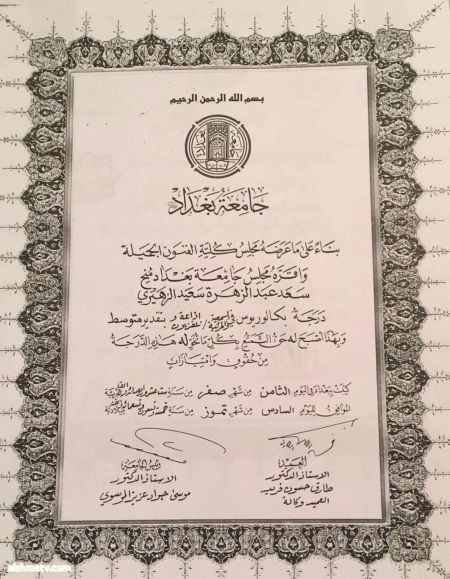 بسم الله الرحمن الرحيم
جامعة بغداد
بناءً على ما عرضه مجلس كلية الفنون الجميلة
واقره مجلس جامعة بغداد منح
سعد عبد الزهرة سعيد الزهيري
درجة بكالوريوس في السمعية والمرئية / اذاعة وتلفزيون بتقدير متوسط
وبهذا اصبح له حق التمتع بكل ما تخوله هذه الدرجة
من حقوق وامتيازات
كتب ببغداد في اليوم الثامن من شهر صفر من سنة ست عشرة واربعمائة والف هجرية
الموافق لليوم السادس من شهر تموز من سنة خمس وتسعين وتسعمائة والف
العميد
الاستاذ الدكتور
طارق حسون فريد
العميد وكالة
رئيس الجامعة
الاستاذ الدكتور
موسى جواد عزيز الموسوي
alshmatv.com